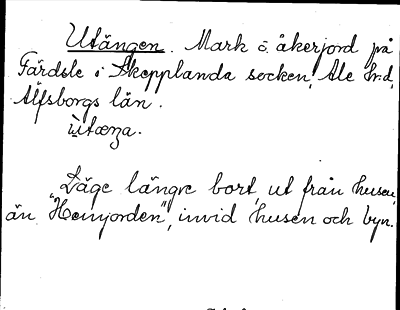 Utängen. Mark o. åkerjord på
Färdsle i Skepplanda socken, Ale hd,
Älfsborgs län.
ùtæŋa.
Läge längre bort ut från husen,
än "Hemjorden", invid husen och byn.